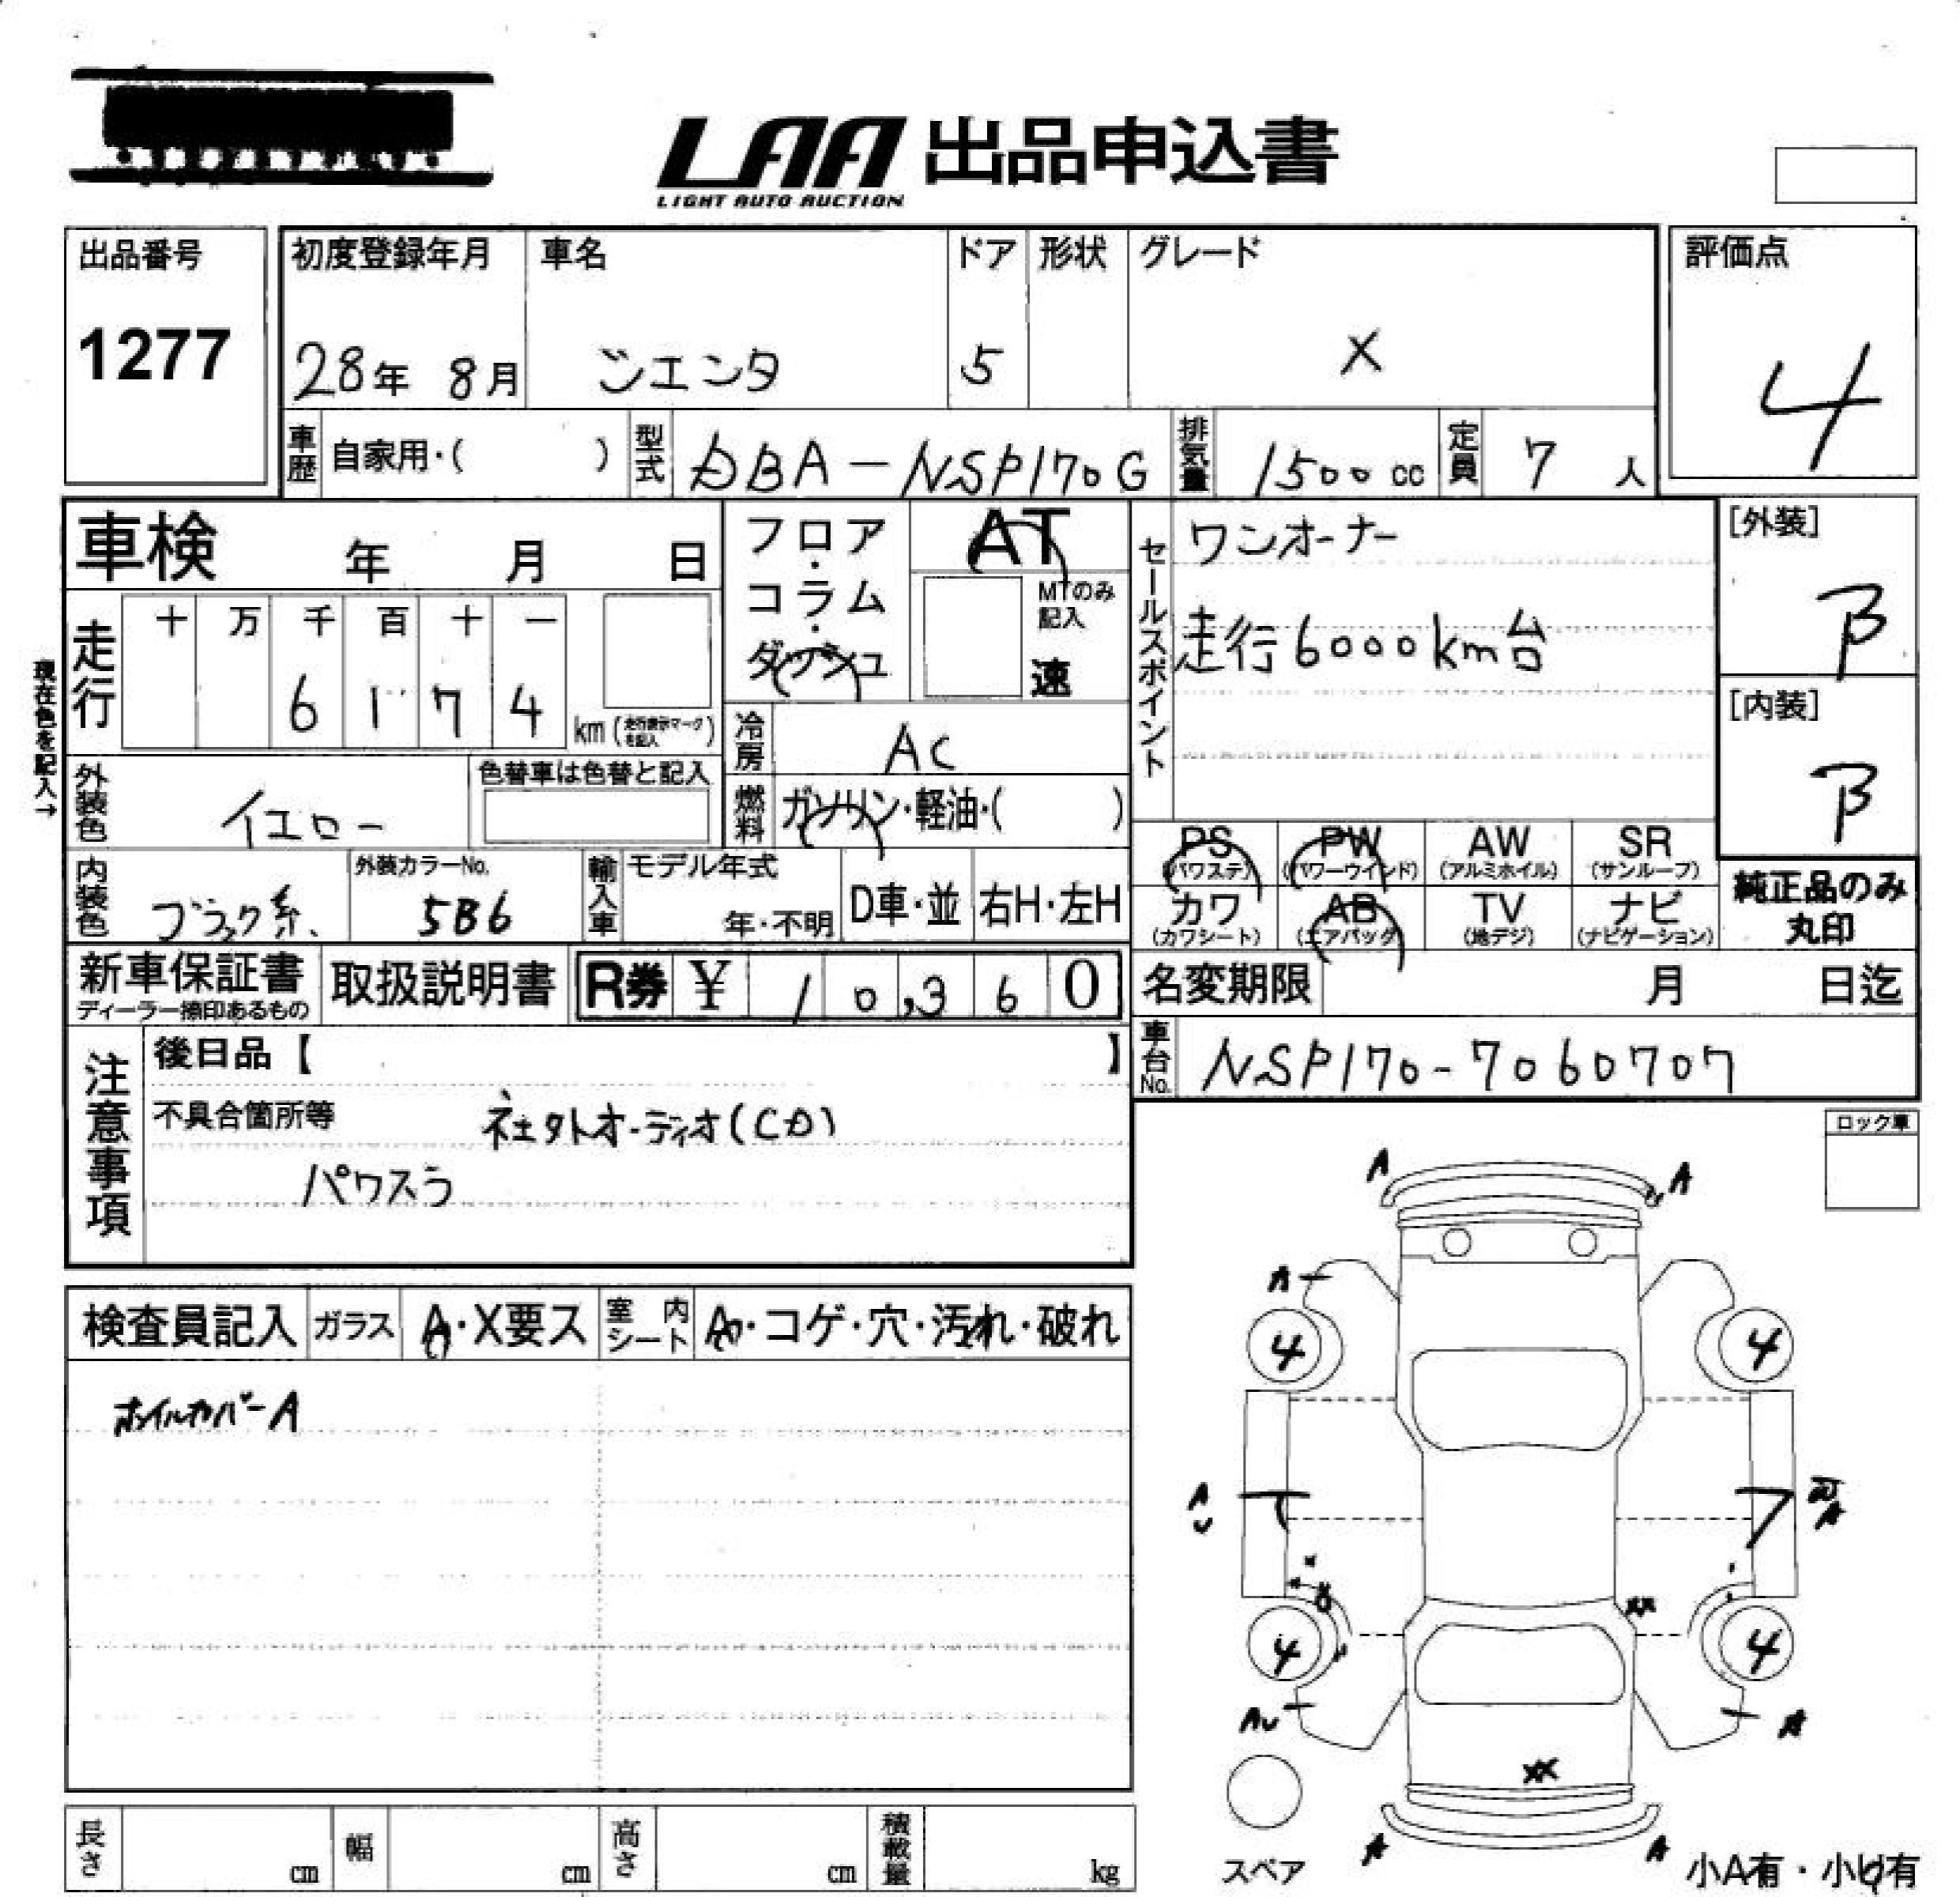 LAA 出品申込書
LIGHT AUTO AUCTION
出品番号
1277
初度登録年月 車名 ドア 形状 グレード
28年 8月 シエンタ 5 X
評価点
4
車歴 自家用・( ) 型式 DBA-NSP170G 排気量 1500cc 定員 7人
車検 年 月 日
フロア・コラム・ダッシュ
AT
MTのみ記入
速
セールスポイント
ワンオーナー
走行6000km台
[外装]
B
[内装]
B
現在色を記入→
走行
十 万 千 百 十 一
6 1 7 4 km(走行表示マークを記入)
冷房 AC
燃料 ガソリン・軽油・( )
外装色 イエロー
色替車は色替と記入
内装色 ブラック系
外装カラーNo.
5B6
輸入車 モデル年式
年・不明 D車・並 右H・左H
PS (パワステ) PW (パワーウインド) AW (アルミホイル) SR (サンルーフ)
カワ (カワシート) AB (エアバッグ) TV (地デジ) ナビ (ナビゲーション)
純正品のみ
丸印
新車保証書
ディーラー捺印あるもの
取扱説明書
R券 ¥ 10,360
名変期限 月 日迄
車台No. NSP170-7060707
注意事項
後日品【 】
不具合箇所等 社外オーディオ(CD)
パワスラ
ロック車
検査員記入 ガラス A・X要ス 室内シート A・コゲ・穴・汚れ・破れ
ホイルカバーA
A A
A
4 4
A
U
A
4 4
AU A
XX
A A
スペア
小A有・小U有
長さ cm 幅 cm 高さ cm 積載量 kg